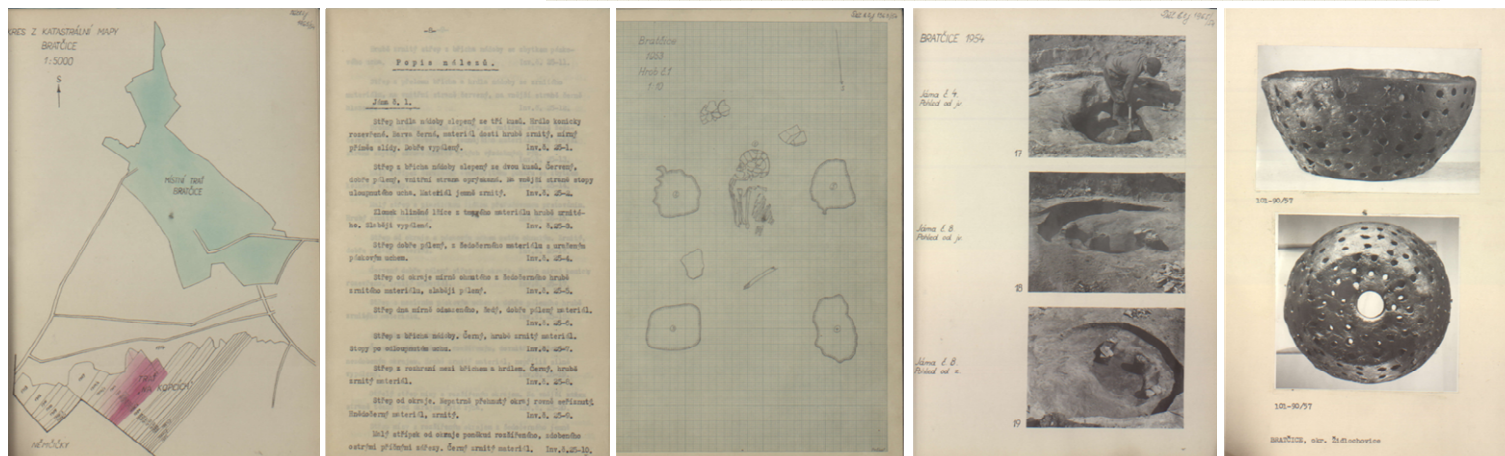 KRES Z KATASTRÁLNÍ MAPY
BRATČICE
1:5000
S
MÍSTNÍ TRAŤ
BRATČICE
TRAŤ
KOPCICH
NĚMČIČKY
Popis nálezů.
Jáma č. 1.
Střep hrdla nádoby slepený ze tří kusů. Hrdlo konicky
rozevřené. Barva černá, materiál dosti hrubě zrnitý, mírný
příměs slídy. Dobře vypálený. Inv.č. 25-1.
Střep z břicha nádoby slepený ze dvou kusů. Červený,
dobře pálený, vnitřní strana oprýskaná. Na vnější straně stopy
sloupnutého ucha. Materiál jemně zrnitý. Inv.č. 25-2.
Zlomek hliněné lžíce z tmavého materiálu hrubě zrnité-
ho. Slaběji vypálené. Inv. č.25-3.
Střep dobře pálený, z šedočerného materiálu s uraženým
páskovým uchem. Inv.č. 25-4.
Střep od okraje mírně ohnutého z šedočerného hrubě
zrnitého materiálu, slaběji pálený. Inv.č. 25-5.
Střep dna mírně odsazeného. Šedý, dobře pálený materiál.
Inv.č. 25-6.
Střep z břicha nádoby. Černý, hrubě zrnitý materiál.
Stopy po ucha. Inv.č. 25-7.
Střep z rozhraní mezi břichem a hrdlem. Černý, hrubě
zrnitý materiál. Inv.č. 25-8.
Střep od okraje. Nepatrně přehnutý okraj rovně seříznutý.
Hnědočerný materiál, zrnitý. Inv.č. 25-9.
Malý střípek od okraje poněkud rozšířeného, zdobeného
ostrými příčnými zářezy. Černý zrnitý materiál. Inv.č.25-10.
Bratčice
1953
Hrob č.1
1:10
BRATČICE 1954
Jáma č. 4.
Pohled od jv.
17
Jáma č. 8.
Pohled od jv.
18
Jáma č. 8.
Pohled od z.
19
101-90/57
101-90/57
BRATČICE, okr. Židlochovice